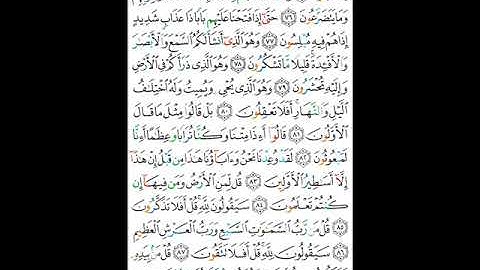 وَمَا يَتَضَرَّعُونَ ۝٧٦ حَتَّىٰٓ إِذَا فَتَحْنَا عَلَيْهِم بَابًا ذَا عَذَابٍ شَدِيدٍ
إِذَا هُمْ فِيهِ مُبْلِسُونَ ۝٧٧ وَهُوَ ٱلَّذِىٓ أَنشَأَ لَكُمُ ٱلسَّمْعَ وَٱلْأَبْصَٰرَ
وَٱلْأَفْـِٔدَةَ قَلِيلًا مَّا تَشْكُرُونَ ۝٧٨ وَهُوَ ٱلَّذِى ذَرَأَكُمْ فِى ٱلْأَرْضِ
وَإِلَيْهِ تُحْشَرُونَ ۝٧٩ وَهُوَ ٱلَّذِى يُحْىِۦ وَيُمِيتُ وَلَهُ ٱخْتِلَٰفُ
ٱلَّيْلِ وَٱلنَّهَارِ أَفَلَا تَعْقِلُونَ ۝٨٠ بَلْ قَالُوا۟ مِثْلَ مَا قَالَ
ٱلْأَوَّلُونَ ۝٨١ قَالُوٓا۟ أَءِذَا مِتْنَا وَكُنَّا تُرَابًا وَعِظَٰمًا أَءِنَّا
لَمَبْعُوثُونَ ۝٨٢ لَقَدْ وُعِدْنَا نَحْنُ وَءَابَآؤُنَا هَٰذَا مِن قَبْلُ إِنْ هَٰذَآ
إِلَّآ أَسَٰطِيرُ ٱلْأَوَّلِينَ ۝٨٣ قُل لِّمَنِ ٱلْأَرْضُ وَمَن فِيهَآ إِن
كُنتُمْ تَعْلَمُونَ ۝٨٤ سَيَقُولُونَ لِلَّهِ قُلْ أَفَلَا تَذَكَّرُونَ
۝٨٥ قُلْ مَن رَّبُّ ٱلسَّمَٰوَٰتِ ٱلسَّبْعِ وَرَبُّ ٱلْعَرْشِ ٱلْعَظِيمِ
۝٨٦ سَيَقُولُونَ لِلَّهِ قُلْ أَفَلَا تَتَّقُونَ ۝٨٧ قُلْ مَنۢ بِيَدِهِۦ